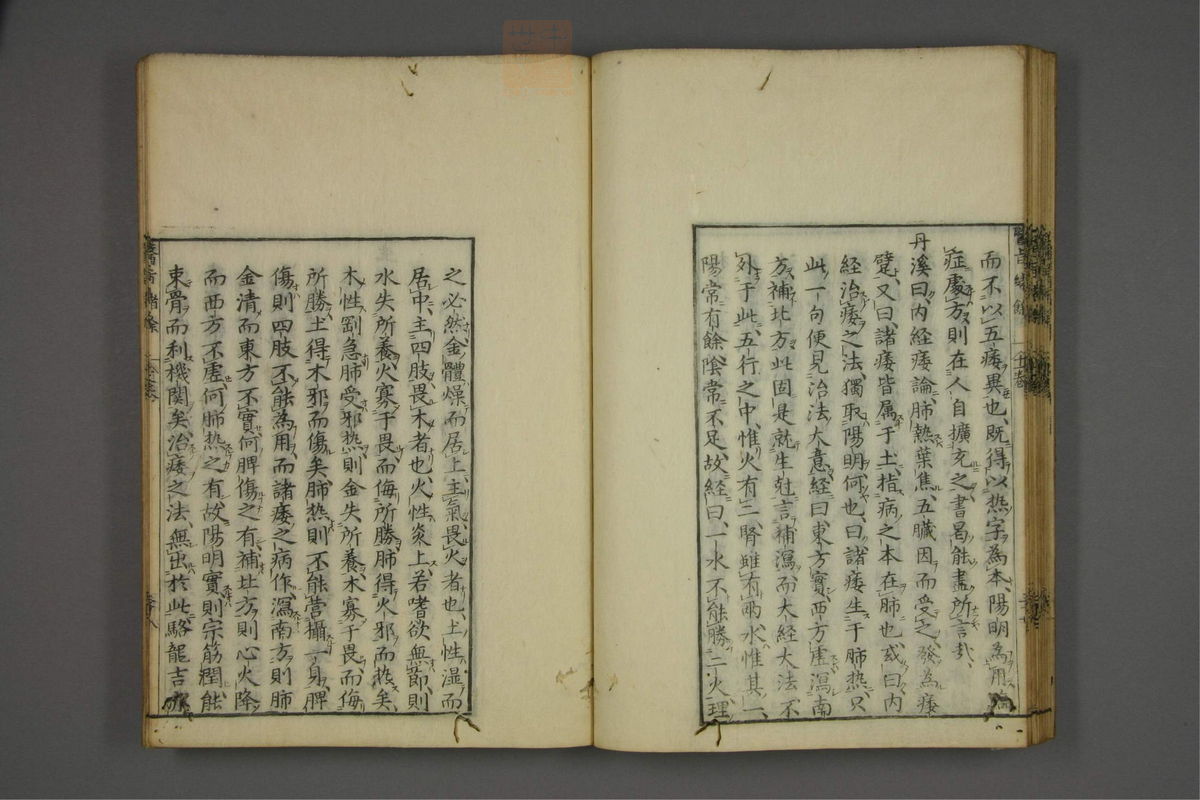 而不以五痿異也既得以热字為本陽明為用
症處方則在人自擴充之書曷能盡所言哉
丹溪曰内経痿論肺熱葉焦五臟因而受之發為痿
躄又曰諸痿皆属于土指病之本在肺也或曰内
経治痿之法獨取陽明何也曰諸痿生于肺热只
此一句便見治法大意経曰東方實西方虛瀉南
方補北方此固是就生尅言補瀉而大経大法不
外于此五行之中惟火有二腎雖有兩水惟其一
陽常有餘陰常不足故経曰一水不能勝二火理
之必然金體燥而居上主氣畏火者也土性湿而
居中主四肢畏木者也火性炎上若嗜欲無節則
水失所養火寡于畏而侮所勝肺得火邪而热矣
木性剛急肺受邪热則金失所養木寡于畏而侮
所勝土得木邪而傷矣肺热則不能营攝一身脾
傷則四肢不能為用而諸痿之病作瀉南方則肺
金清而東方不實何脾傷之有補北方則心火降
而西方不虛何肺热之有故陽明實則宗筋潤能
束骨而利機関矣治痿之法無出於此駱龍吉亦